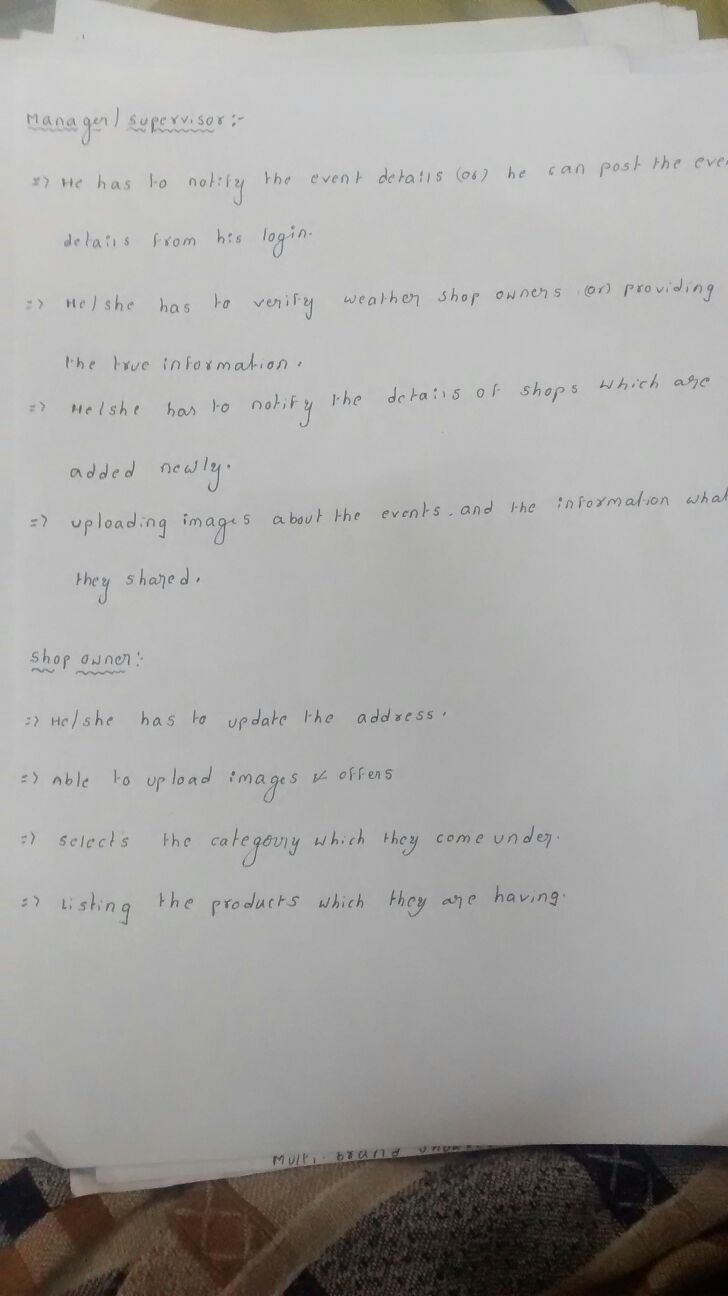 Manager/ Supervisor:-
=> He has to notify the event details (or) he can post the eve
details from his login.
=> He/she has to verify weather shop owners (or) providing
the true information.
=> He/she has to notify the details of shops which are
added newly.
=> uploading images about the events. and the information what
they shared.
Shop owner:-
=> He/she has to update the address.
=> Able to upload images & offers
=> selects the category which they come under.
=> Listing the products which they are having.
Multi-brand